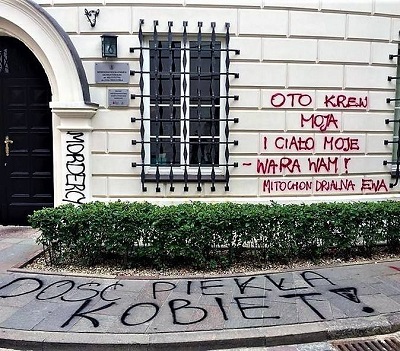 OTO KREW
MOJA
I CIAŁO MOJE
- WARA WAM!
MITOCHONDRIALNA EWA
MORDERCY
DOŚĆ PIEKŁA
KOBIET!